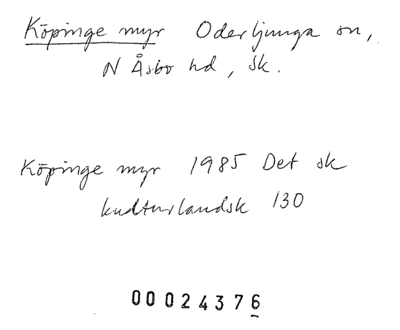 Köpinge myr Oderljunga sn,
N Åsbo hd, Sk.
Köpinge myr 1985 Det sk
kulturlandsk 130
00024376